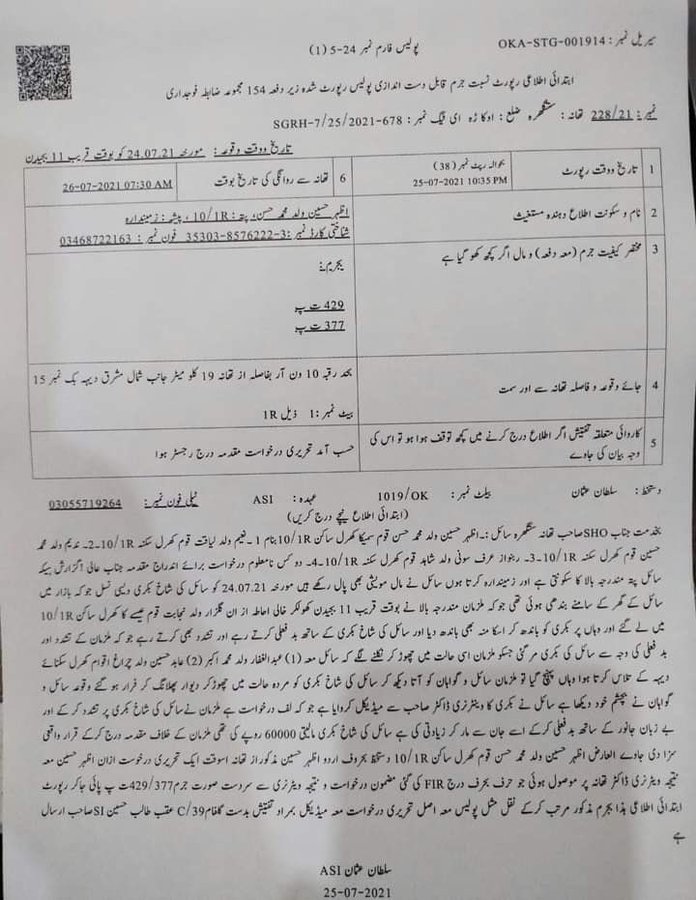 سیریل نمبر : OKA-STG-001914
پولیس فارم نمبر 24-5 (1)
ابتدائی اطلاعی رپورٹ نسبت جرم قابل دست اندازی پولیس رپورٹ شدہ زیر دفعہ 154 مجموعہ ضابطہ فوجداری
نمبر: 228/21 تھانہ : ستگھرہ ضلع : اوکاڑہ ای ٹیگ نمبر : SGRH-7/25/2021-678
تاریخ و وقت وقوعہ : مورخہ 24.07.21 کو بوقت قریب 11 بجیدن
1 تاریخ و وقت رپورٹ بحوالہ رپٹ نمبر (38) 25-07-2021 10:35 PM 6 تھانہ سے روانگی کی تاریخ بوقت 26-07-2021 07:30 AM
2 نام و سکونت اطلاع دہندہ مستغیث
اظہر حسین ولد محمد حسن، پتہ : 10/1R ، پیشہ : زمیندارہ
شناختی کارڈ نمبر : 35303-8576222-3 فون نمبر : 03468722163
3 مختصر کیفیت جرم (معہ دفعہ) و مال اگر کچھ کھو گیا ہے
بجرم :
429 ت پ
377 ت پ
4 جائے وقوعہ و فاصلہ تھانہ سے اور سمت
بحد رقبہ 10 ون آر بفاصلہ از تھانہ 19 کلو میٹر جانب شمال مشرق دیہہ بک نمبر 15
بیٹ نمبر : 1 ذیل 1R
5 کاروائی متعلقہ تفتیش اگر اطلاع درج کرنے میں کچھ توقف ہوا ہو تو اس کی وجہ بیان کی جاوے
حسب آمد تحریری درخواست مقدمہ درج رجسٹر ہوا
دستخط : سلطان عثمان بیلٹ نمبر : 1019/OK عہدہ : ASI ٹیلی فون نمبر : 03055719264
(ابتدائی اطلاع نیچے درج کریں)
بخدمت جناب SHO صاحب تھانہ ستگھرہ سائل :۔ اظہر حسین ولد محمد حسن قوم کھرل ساکن 10/1R بنام 1۔ نعیم ولد لیاقت قوم کھرل سکنہ 10/1R۔2۔ ندیم ولد محمد
حسین قوم کھرل سکنہ 10/1R۔3۔ ربنواز عرف سونی ولد شاہد قوم کھرل سکنہ 10/1R۔4۔ دو کس نامعلوم درخواست برائے اندراج مقدمہ جناب عالی گزارش ہیکہ
سائل پتہ مندرجہ بالا کا سکونتی ہے اور زمیندارہ کرتا ہوں سائل نے مال مویشی بھی پال رکھے ہیں مورخہ 24.07.21 کو سائل کی شاخ بکری دیسی نسل جو کہ بازار میں
سائل کے گھر کے سامنے بندھی ہوئی تھی جو کہ ملزمان مندرجہ بالا نے بوقت قریب 11 بجیدن کھولکر خالی احاطہ از ان گلزار ولد نجابت قوم کھرل ساکن 10/1R
میں لے گئے اور وہاں پر بکری کو باندھ کر اسکا منہ بھی باندھ دیا اور سائل کی شاخ بکری کے ساتھ بد فعلی کرتے رہے اور تشدد بھی کرتے رہے جو کہ ملزمان کے تشدد اور
بد فعلی کی وجہ سے سائل کی بکری مر گئی جسکو ملزمان اسی حالت میں چھوڑ کر نکلنے لگے کہ سائل معہ (1) عبدالغفار ولد محمد اکبر (2) عابد حسین ولد چراغ اقوام کھرل سکنائے
دیہہ کے تلاش کرتا ہوا وہاں پہنچ گیا تو ملزمان سائل و گواہان کو آتا دیکھ کر سائل کی شاخ بکری کو مردہ حالت میں چھوڑ کر دیوار پھلانگ کر فرار ہو گئے وقوعہ سائل و
گواہان نے بچشم خود دیکھا ہے سائل نے بکری کا ویٹرنری ڈاکٹر صاحب سے میڈیکل کروایا ہے جو کہ لف درخواست ہے ملزمان نے سائل کی شاخ بکری پر تشدد کر کے اور
بے زبان جانور کے ساتھ بدفعلی کرکے اسے جان سے مار کر زیادتی کی ہے سائل کی شاخ بکری مالیتی 60000 روپے کی تھی ملزمان کے خلاف مقدمہ درج کرکے قرار واقعی
سزا دی جاوے العارض اظہر حسین ولد محمد حسن قوم کھرل ساکن 10/1R دستخط بحروف اردو اظہر حسین مذکور از تھانہ اسوقت ایک تحریری درخوست ازان اظہر حسین معہ
نتیجہ ویٹرنری ڈاکٹر تھانہ پر موصول ہوئی جو حرف بحرف درج FIR کی گئی مضمون درخواست و نتیجہ ویٹرنری سے سردست صورت جرم 429/377 ت پ پائی جاکر رپورٹ
ابتدائی اطلاعی ہذا بجرم مذکور مرتب کرکے نقل مثل پولیس معہ اصل تحریری درخواست معہ میڈیکل بمراد تفتیش بدست گلفام 39/C عقب طالب حسین SI صاحب ارسال
ہے
سلطان عثمان ASI
25-07-2021